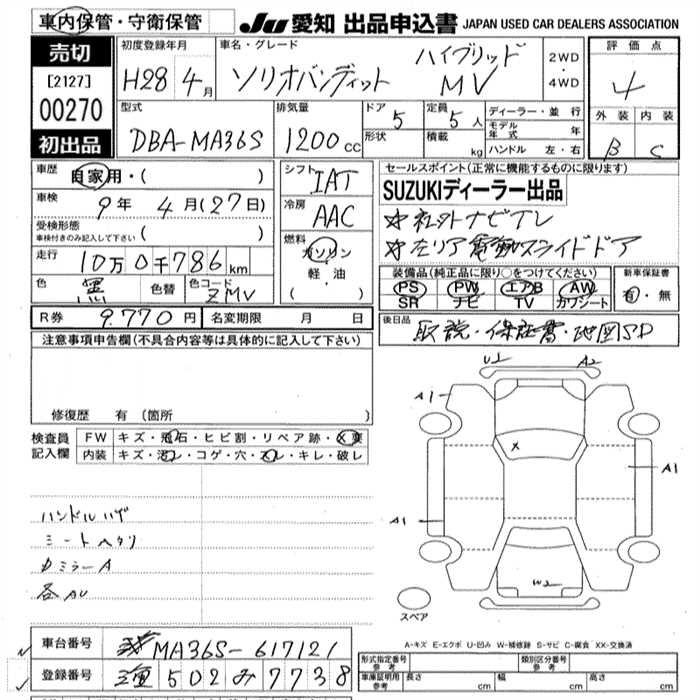 車内保管・守衛保管
JU 愛知 出品申込書 JAPAN USED CAR DEALERS ASSOCIATION
売切
[2127]
00270
初出品
初度登録年月 車名・グレード
H28 4月 ソリオバンディット ハイブリッド MV
2WD・4WD
評価点
4
外装 内装
B C
型式 排気量 ドア 定員
DBA-MA36S 1200cc 5 5人
形状 積載 kg
ディーラー・並行
モデル年式 年
ハンドル 左・右
車歴 自家用・( )
車検 9年 4月(27日)
受検形態
車検付きのみ記入して下さい ( )
走行 10万0千786km
色 黒 色替 色コード ZMV
シフト IAT
冷房 AAC
燃料 ガソリン
軽・油
・( )
セールスポイント(正常に機能するものに限ります)
SUZUKIディーラー出品
☆社外ナビTV
☆左リア電動スライドドア
装備品(純正品に限り○をつけてください)
PS PW エアB AW
SR ナビ TV カワシート
新車保証書
有・無
R券 9.770円 名変期限 月 日
後日品 取説・保証書・地図SD
注意事項申告欄(不具合内容等は具体的に記入して下さい)
修復歴 有 (箇所
検査員記入欄
FW キズ・飛石・ヒビ割・リペア跡・X要
内装 キズ・汚レ・コゲ・穴・スレ・キレ・破レ
ハンドルハゲ
シートヘタリ
カミラーA
各AU
U2 A2
A1
X
A1
A1
W2
スペア
A-キズ E-エクボ U-凹み W-補修跡 S-サビ C-腐食 XX-交換済
車台番号 MA36S-617121
登録番号 502み7738
形式指定番号 参考 類別区分番号 参考
車庫証明用 参考 長さ cm 幅 cm 高さ cm